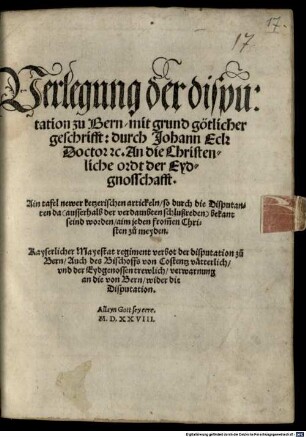 17.
17.
Verlegung der dispu:
tation zu Bern/ mit grund götlicher
geschrifft: durch Johann Eck
Doctor ꝛc. An die Christen-
liche ordt der Eyd-
gnoschafft.
Ain tafel newer ketzerischen artickeln/ so durch die Disputan-
ten da/ ausserhalb der verdambten schlußreden/ bekant
seind worden/ aim jeden from̃en Chri-
sten zu meyden.
Kayserlicher Mayestat regiment verbot der disputation zů
Bern/ Auch des Bischoffs von Costentz vätterlich/
vnd der Eydgnossen trewlich/ verwarnung
an die von Bern/ wider die
Disputation.
Allein Gott sey eere.
M. D. XXVIII.